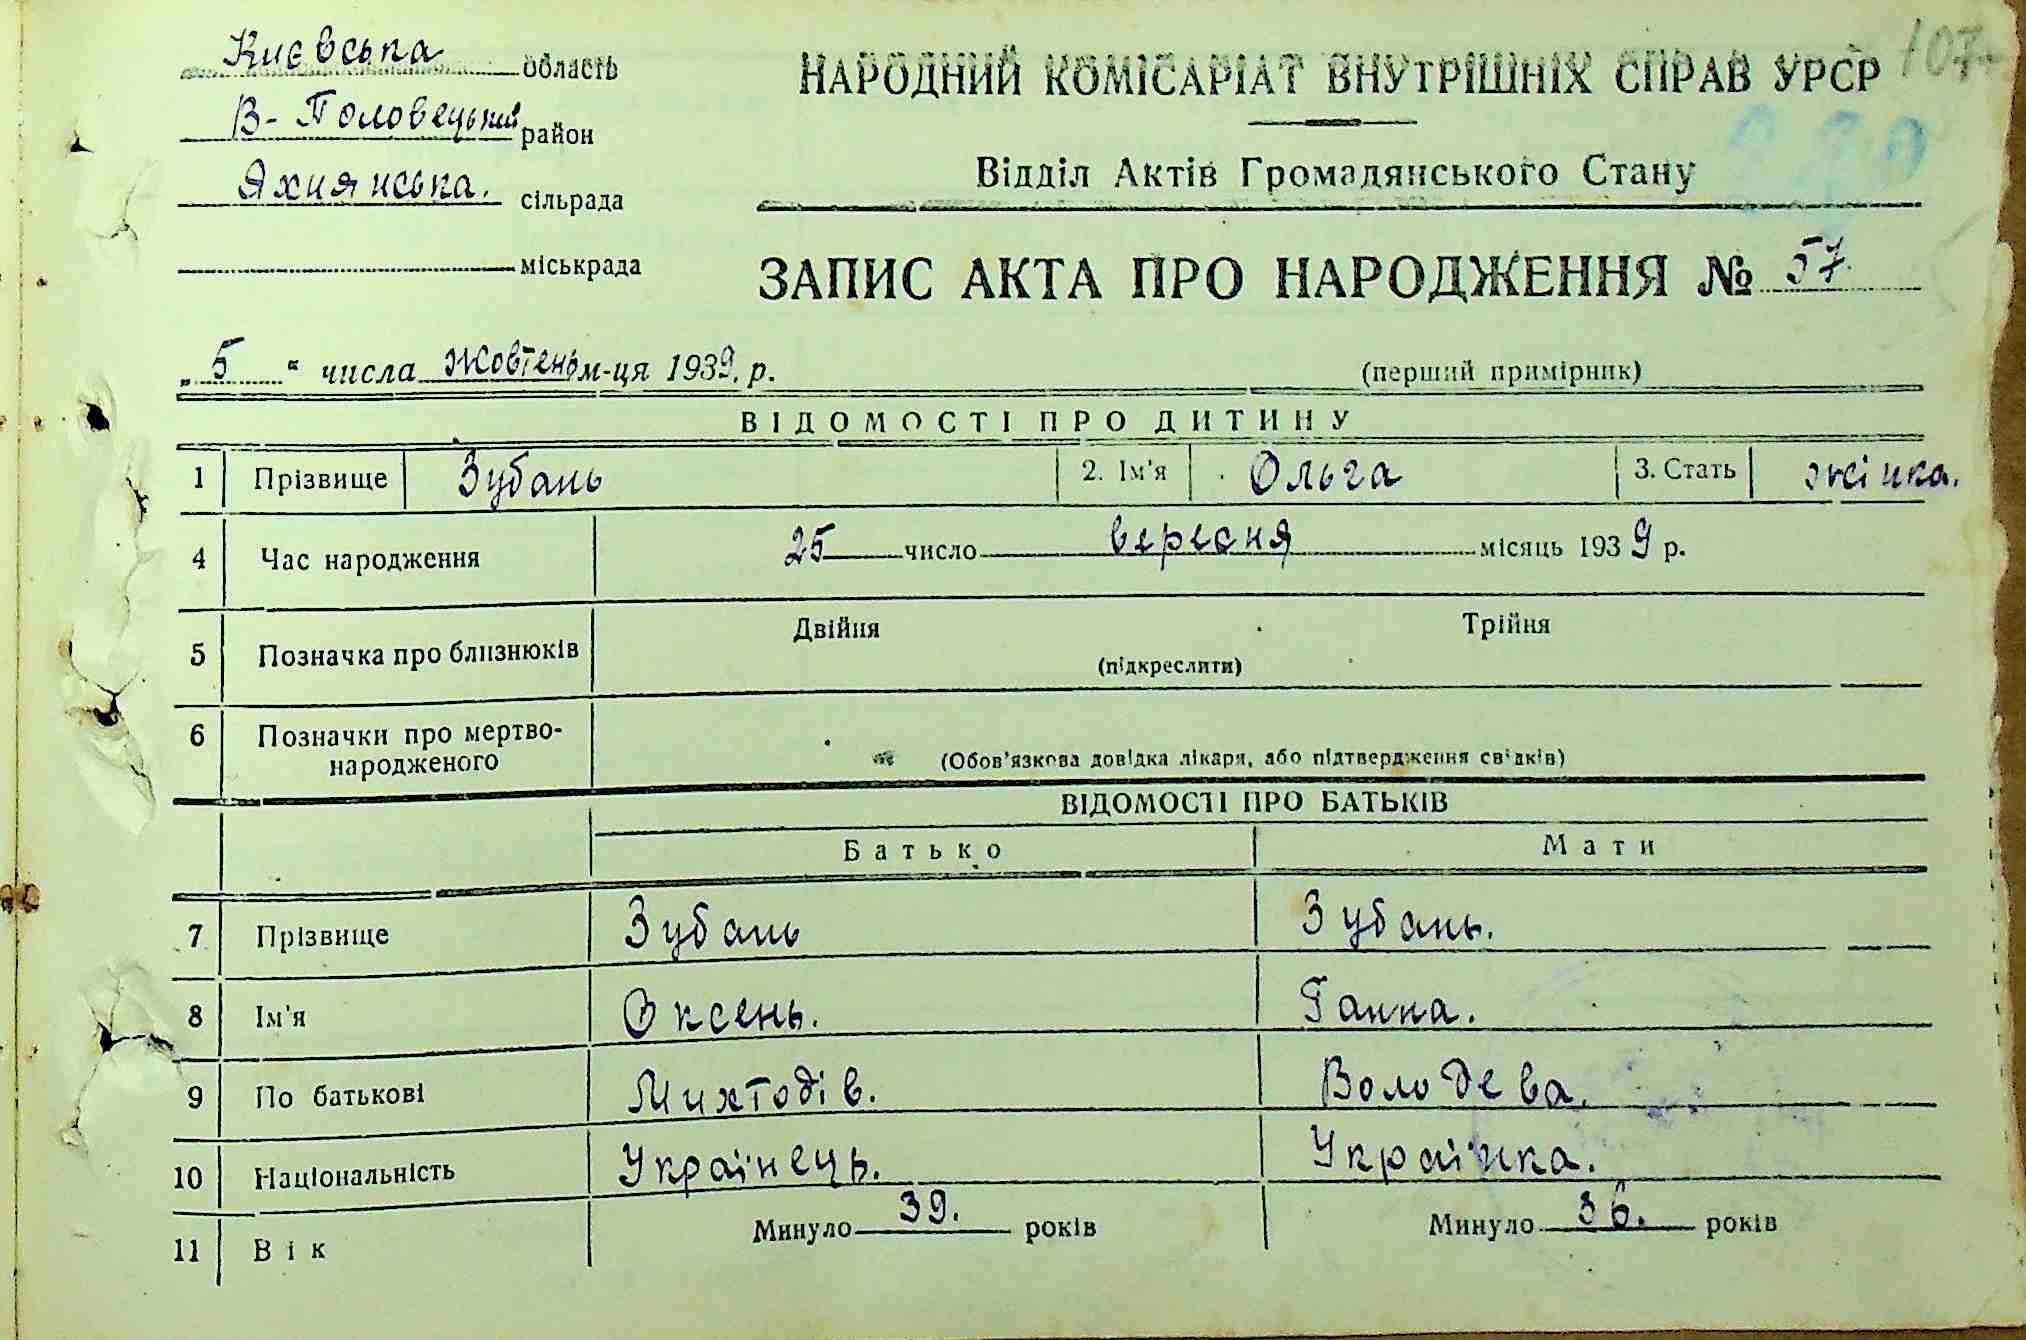 Києвська область
В-Половецький район
Яхнянська. сільрада
міськрада
НАРОДНИЙ КОМІСАРІАТ ВНУТРІШНІХ СПРАВ УРСР
107
Відділ Актів Громадянського Стану
ЗАПИС АКТА ПРО НАРОДЖЕННЯ № 57.
„ 5 " числа жовтень м-ця 1939. р.
(перший примірник)
ВІДОМОСТІ ПРО ДИТИНУ
1 Прізвище Зубань 2. Ім'я Ольга 3. Стать жінка.
4 Час народження 25 число вересня місяць 1939 р.
5 Позначка про близнюків Двійня Трійня
(підкреслити)
6 Позначки про мертво-
народженого (Обов'язкова довідка лікаря, або підтвердження свідків)
ВІДОМОСТІ ПРО БАТЬКІВ
Батько Мати
7 Прізвище Зубань Зубань.
8 Ім'я Оксень. Ганна.
9 По батькові Михтодів. Володева.
10 Національність Українець. Українка.
11 Вік Минуло 39. років Минуло 36. років